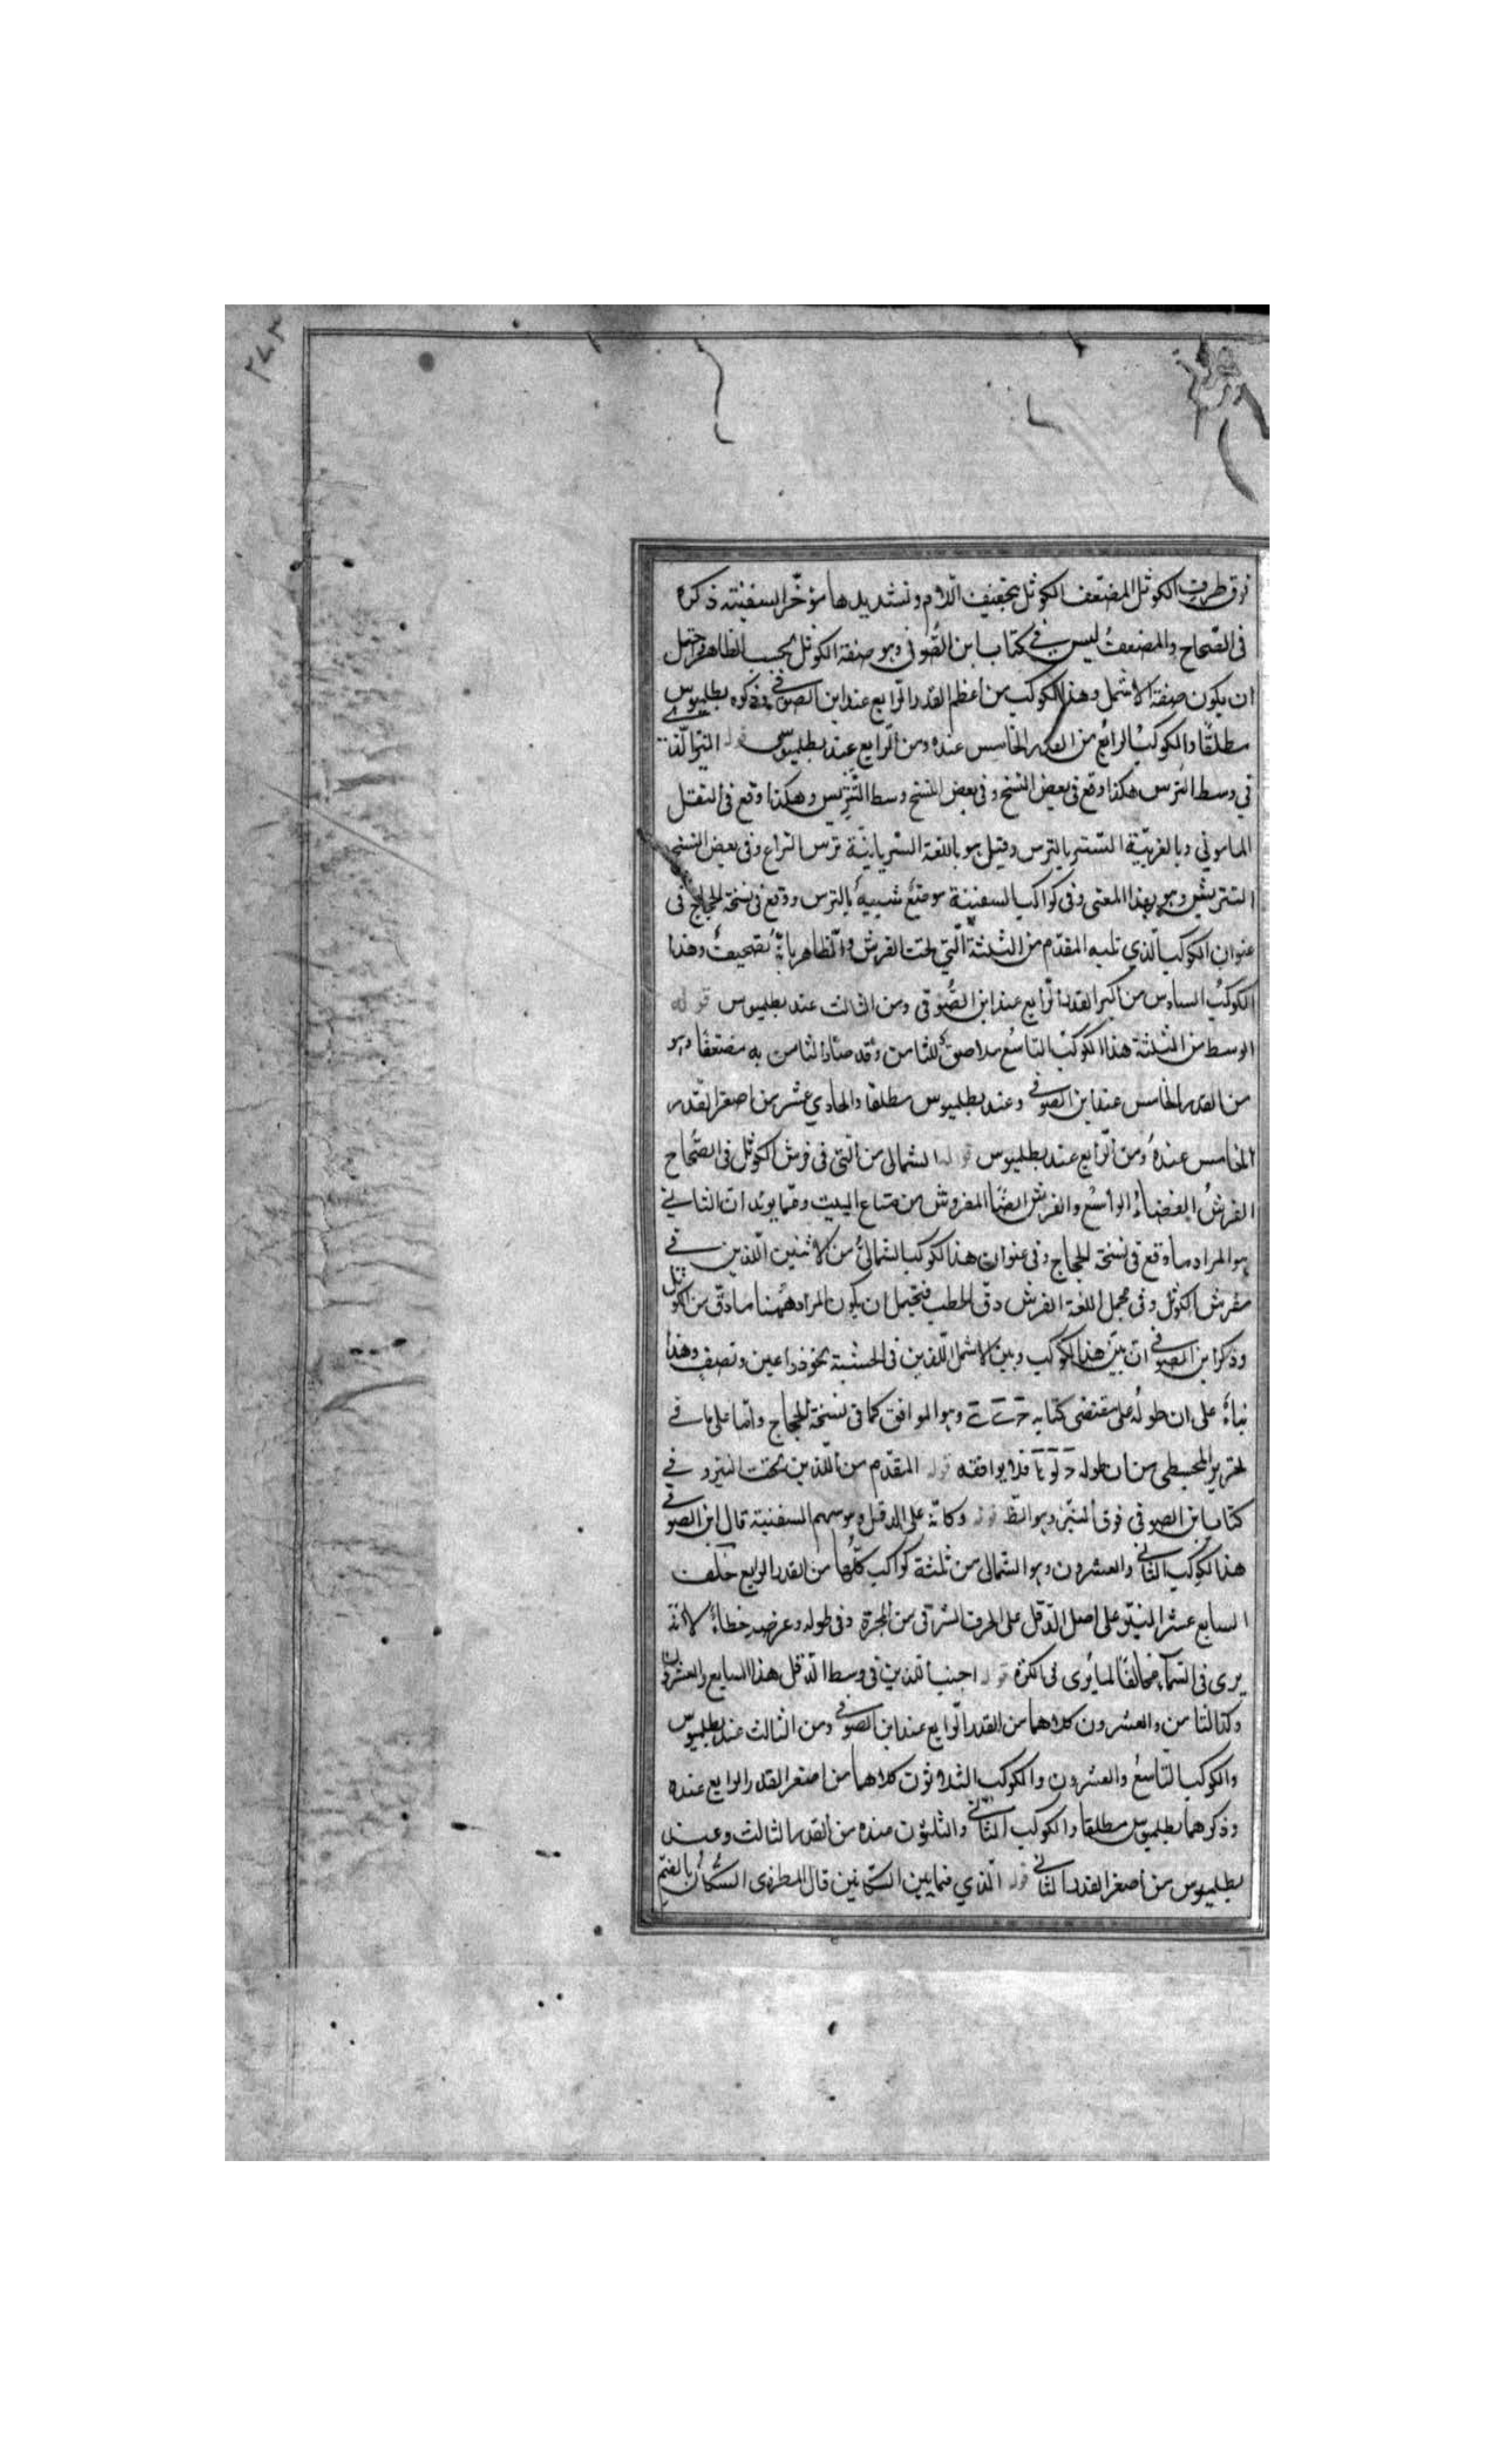 ٢٧٣
فوق طرف الكوثل المضعف الكوثل بتخفيف اللام وتشديدها مؤخّر السفينة ذكره
فى الصّحاح والمضعفُ ليس في كتاب ابن الصُّوفى وهو صفة الكوثل بحسب الظاهر ويحتمل
ان يكون صفة الاشمل وهذا الكوكب من أعظم القدر الرّابع عند ابن الصوفي وذكره بطلميوس
مطلقًا والكوكبُ الرابع من القدر الخامس عنده ومن الرّابع عند بطلميوس قوله النير الّذى
في وسط الترس هكذا وقع فى بعض النسخ وفى بعض النسخ وسط التّتريس وهكذا وقع فى النقل
المامونى وبالعربيّة التستر بالترس وقيل هو باللغة السّريانيّة ترس الذراع وفى بعض النسخ
التتريش وهو بهذا المعنى وفى كواكب السفينة موضعٌ شبيهٌ بالترس ووقع فى نسخة الحجاج فى
عنوان الكوكب الّذي تليه المقدّم من الثلثة الّتي تحت الفرش والظاهر بانّه تصحيفٌ وهذا
الكوكبُ السادس من أكبر القدر الرّابع عند ابن الصُّوفى ومن الثالث عند بطلميوس قوله
الوسط من الثلثة هذا الكوكبُ التاسعُ ملاصق للثامن وقد صار الثامن به مضعفًا وهو
من القدر الخامس عند ابن الصوفي وعند بطلميوس مطلقا والحادي عشر من اصغر القدر
الخامس عندهُ ومن الرّابع عند بطلميوس قوله الشمالى من التى فى فرش الكوثل فى الصُّحاح
الفرشُ الفضاءُ الواسعُ والفرش ايضًا المفروش من متاع البيت وممّا يويّد انّ الثاني
هو المراد ما وقع فى نسخة الحجاج وفى عنوان هذا الكوكب الشمالىُّ من الاثنين اللّذين في
مفرش الكوثل وفى مجمل اللغة الفرش دقّ الحطب فيحتمل ان يكون المراد ههُنا ما دقّ من الكوثل
وذكر ابن الصوفي انّ بين هذا الكوكب وبين الاشمل اللّذين فى الخشبة نحو ذراعين ونصفٍ وهذا
بناءً على ان طولهُ على مقتضى كتابه وهو الموافق لما فى نسخة الحجاج وامّا على ما في
تحرير المجسطى من ان طوله فلا يوافقه قوله المقدّم من اللّذين تحت النيّر وفي
كتاب ابن الصوفى فوق النيّر وهو الظ قوله وكانّه على الدقل وهو سهم السفينة قال ابن الصوفي
هذا الكوكب الثاني والعشرون وهو الشمالى من ثلثة كواكب كلّها من القدر الرابع خلف
السابع عشر النيّر على اصل الدّقل على الحرف الشرقى من المجرة وفى طوله وعرضه خطاءٌ لانّه
يرى فى السّماء مخالفًا لما يُرى فى الكرة قوله اجنب اللذين فى وسط الدّقل هذا السابع والعشرون
وكذا الثامن والعشرون كلاهما من القدر الرّابع عند ابن الصوفي ومن الثالث عند بطلميوس
والكوكب التاسعُ والعشرون والكوكب الثلاثون كلاهما من اصغر القدر الرابع عنده
وذكرهما بطلميوس مطلقا والكوكب الثاني والثلثون عنده من القدر الثالث وعند
بطلميوس من أصغر القدر الثاني قوله الّذي فيما بين السّكّانين قال المطرزى السُّكّان بالضمّ